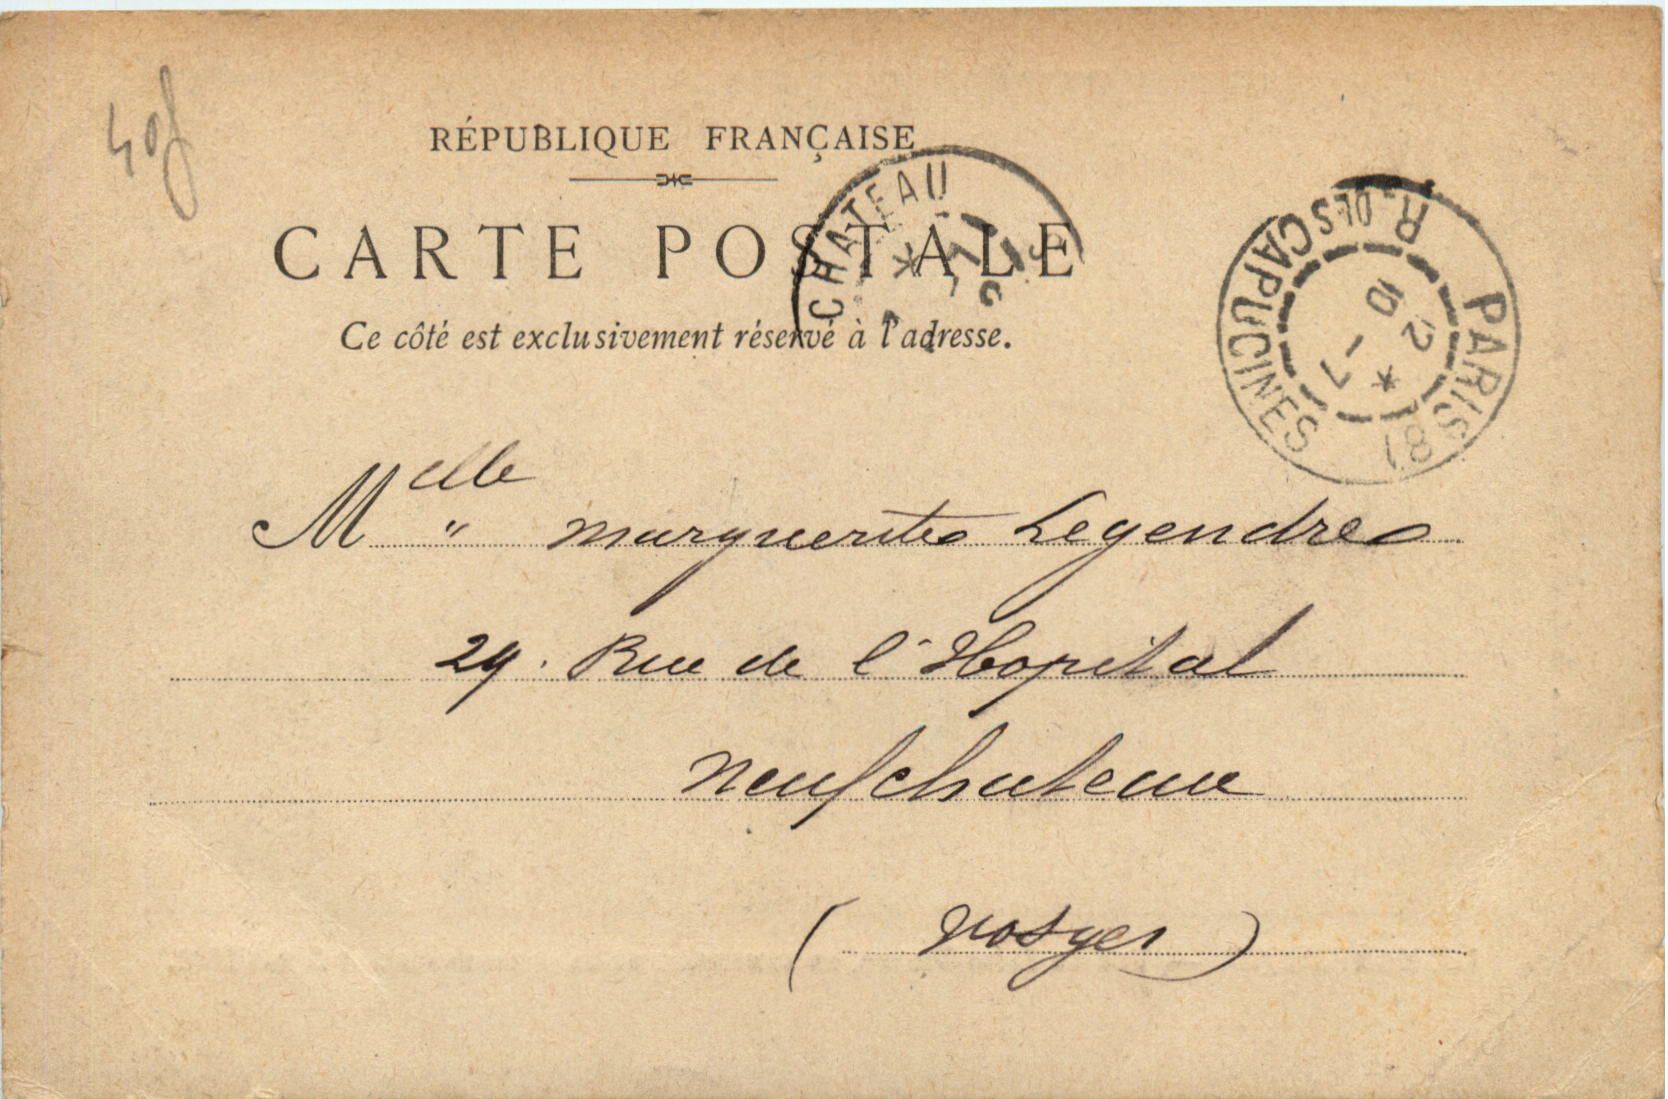 40f
RÉPUBLIQUE FRANÇAISE
CARTE POSTALE
Ce côté est exclusivement réservé à l'adresse.
CHATEAU
PARIS (8)
R. DES CAPUCINES
Melle " Marguerite Legendre
29. Rue de l'Hopital
Neufchateau
(Vosges)